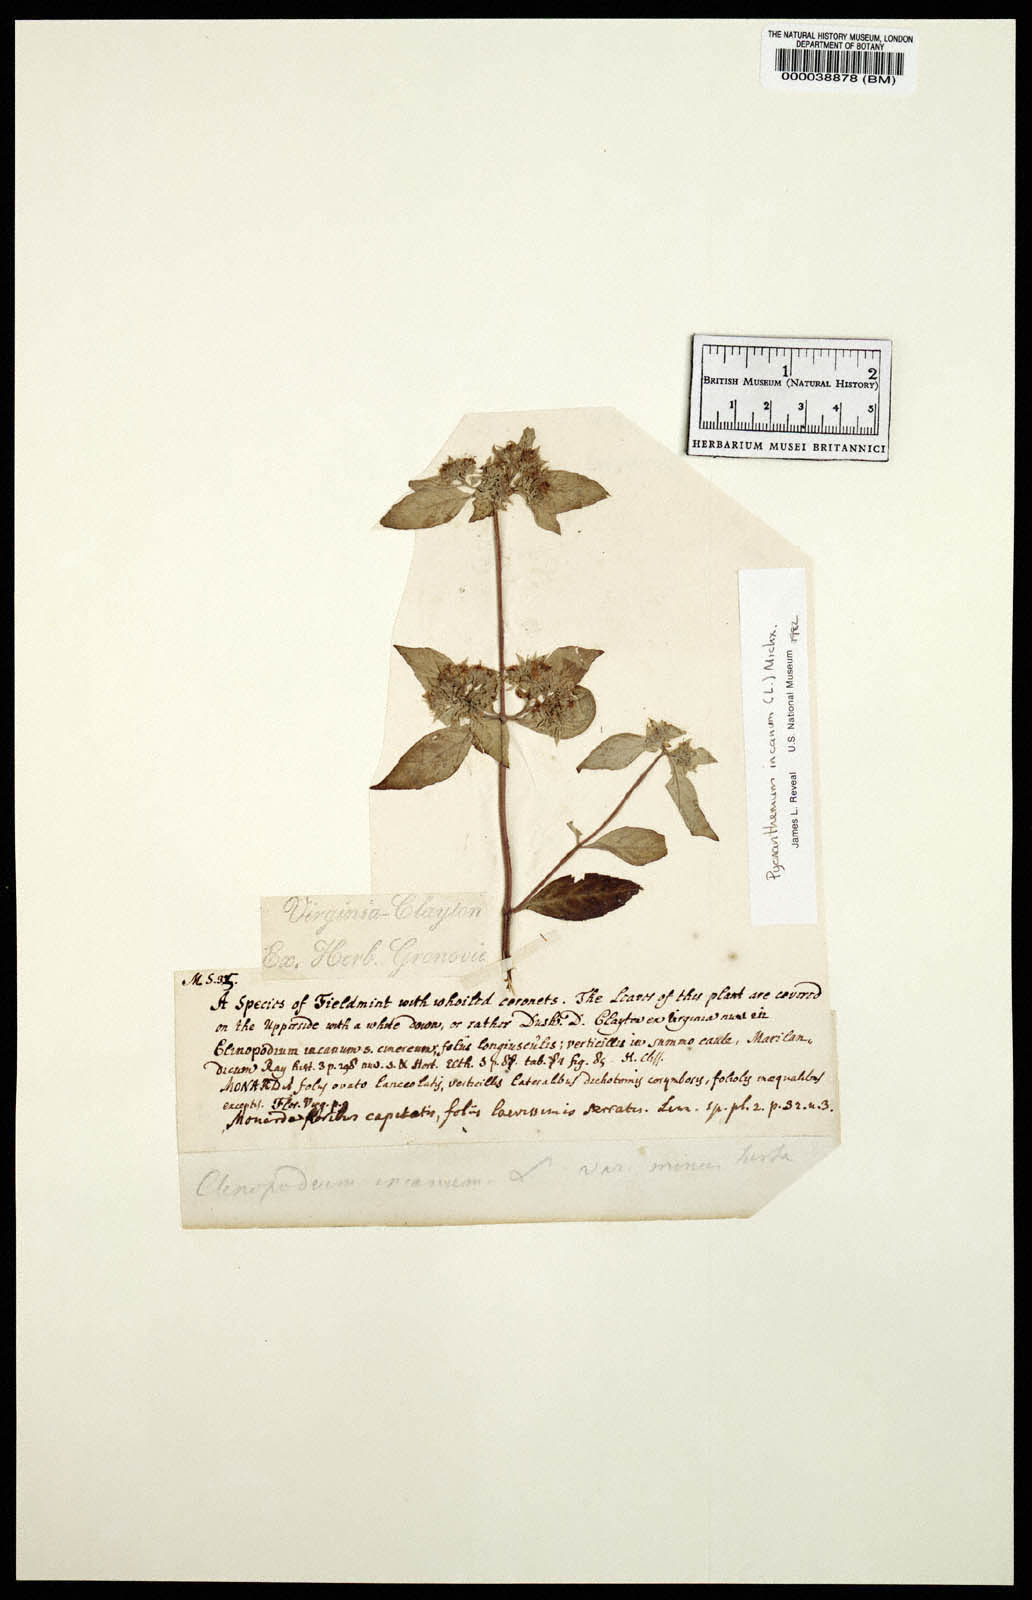 THE NATURAL HISTORY MUSEUM, LONDON
DEPARTMENT OF BOTANY
000038878 (BM)
1 2
BRITISH MUSEUM (NATURAL HISTORY)
1 2 3 4 5
HERBARIUM MUSEI BRITANNICI
Pycnanthemum incanum (L.) Michx.
James L. Reveal U.S. National Museum 1982
Virginia-Clayton
Ex. Herb. Gronovii
A Species of Fieldmint with whoiled coronets. The Leaves of this plant are covered
on the Upperside with a white down, or rather Dust. D. Clayton ex Virginia num
Clinopodium incanum s. cinereum, foliis longiusculis; verticillis in summo caule, Marilan-
dicum Ray hist. 3 p. 298 n. 3. & Hort. Elth. 3 p. 87. tab. 74 fig. 85 H. Cliff.
MONARDA folijs ovato lanceolatis, verticillis lateralibus dichotomis corymbosis, foliolis inæqualibus
exceptis. Flor. Virg. p. 9
Monarda floribus capitatis, foliis laevissimis serratis. Linn. sp. pl. 2. p. 32. n. 3.
Clinopodium incanum. var. minus